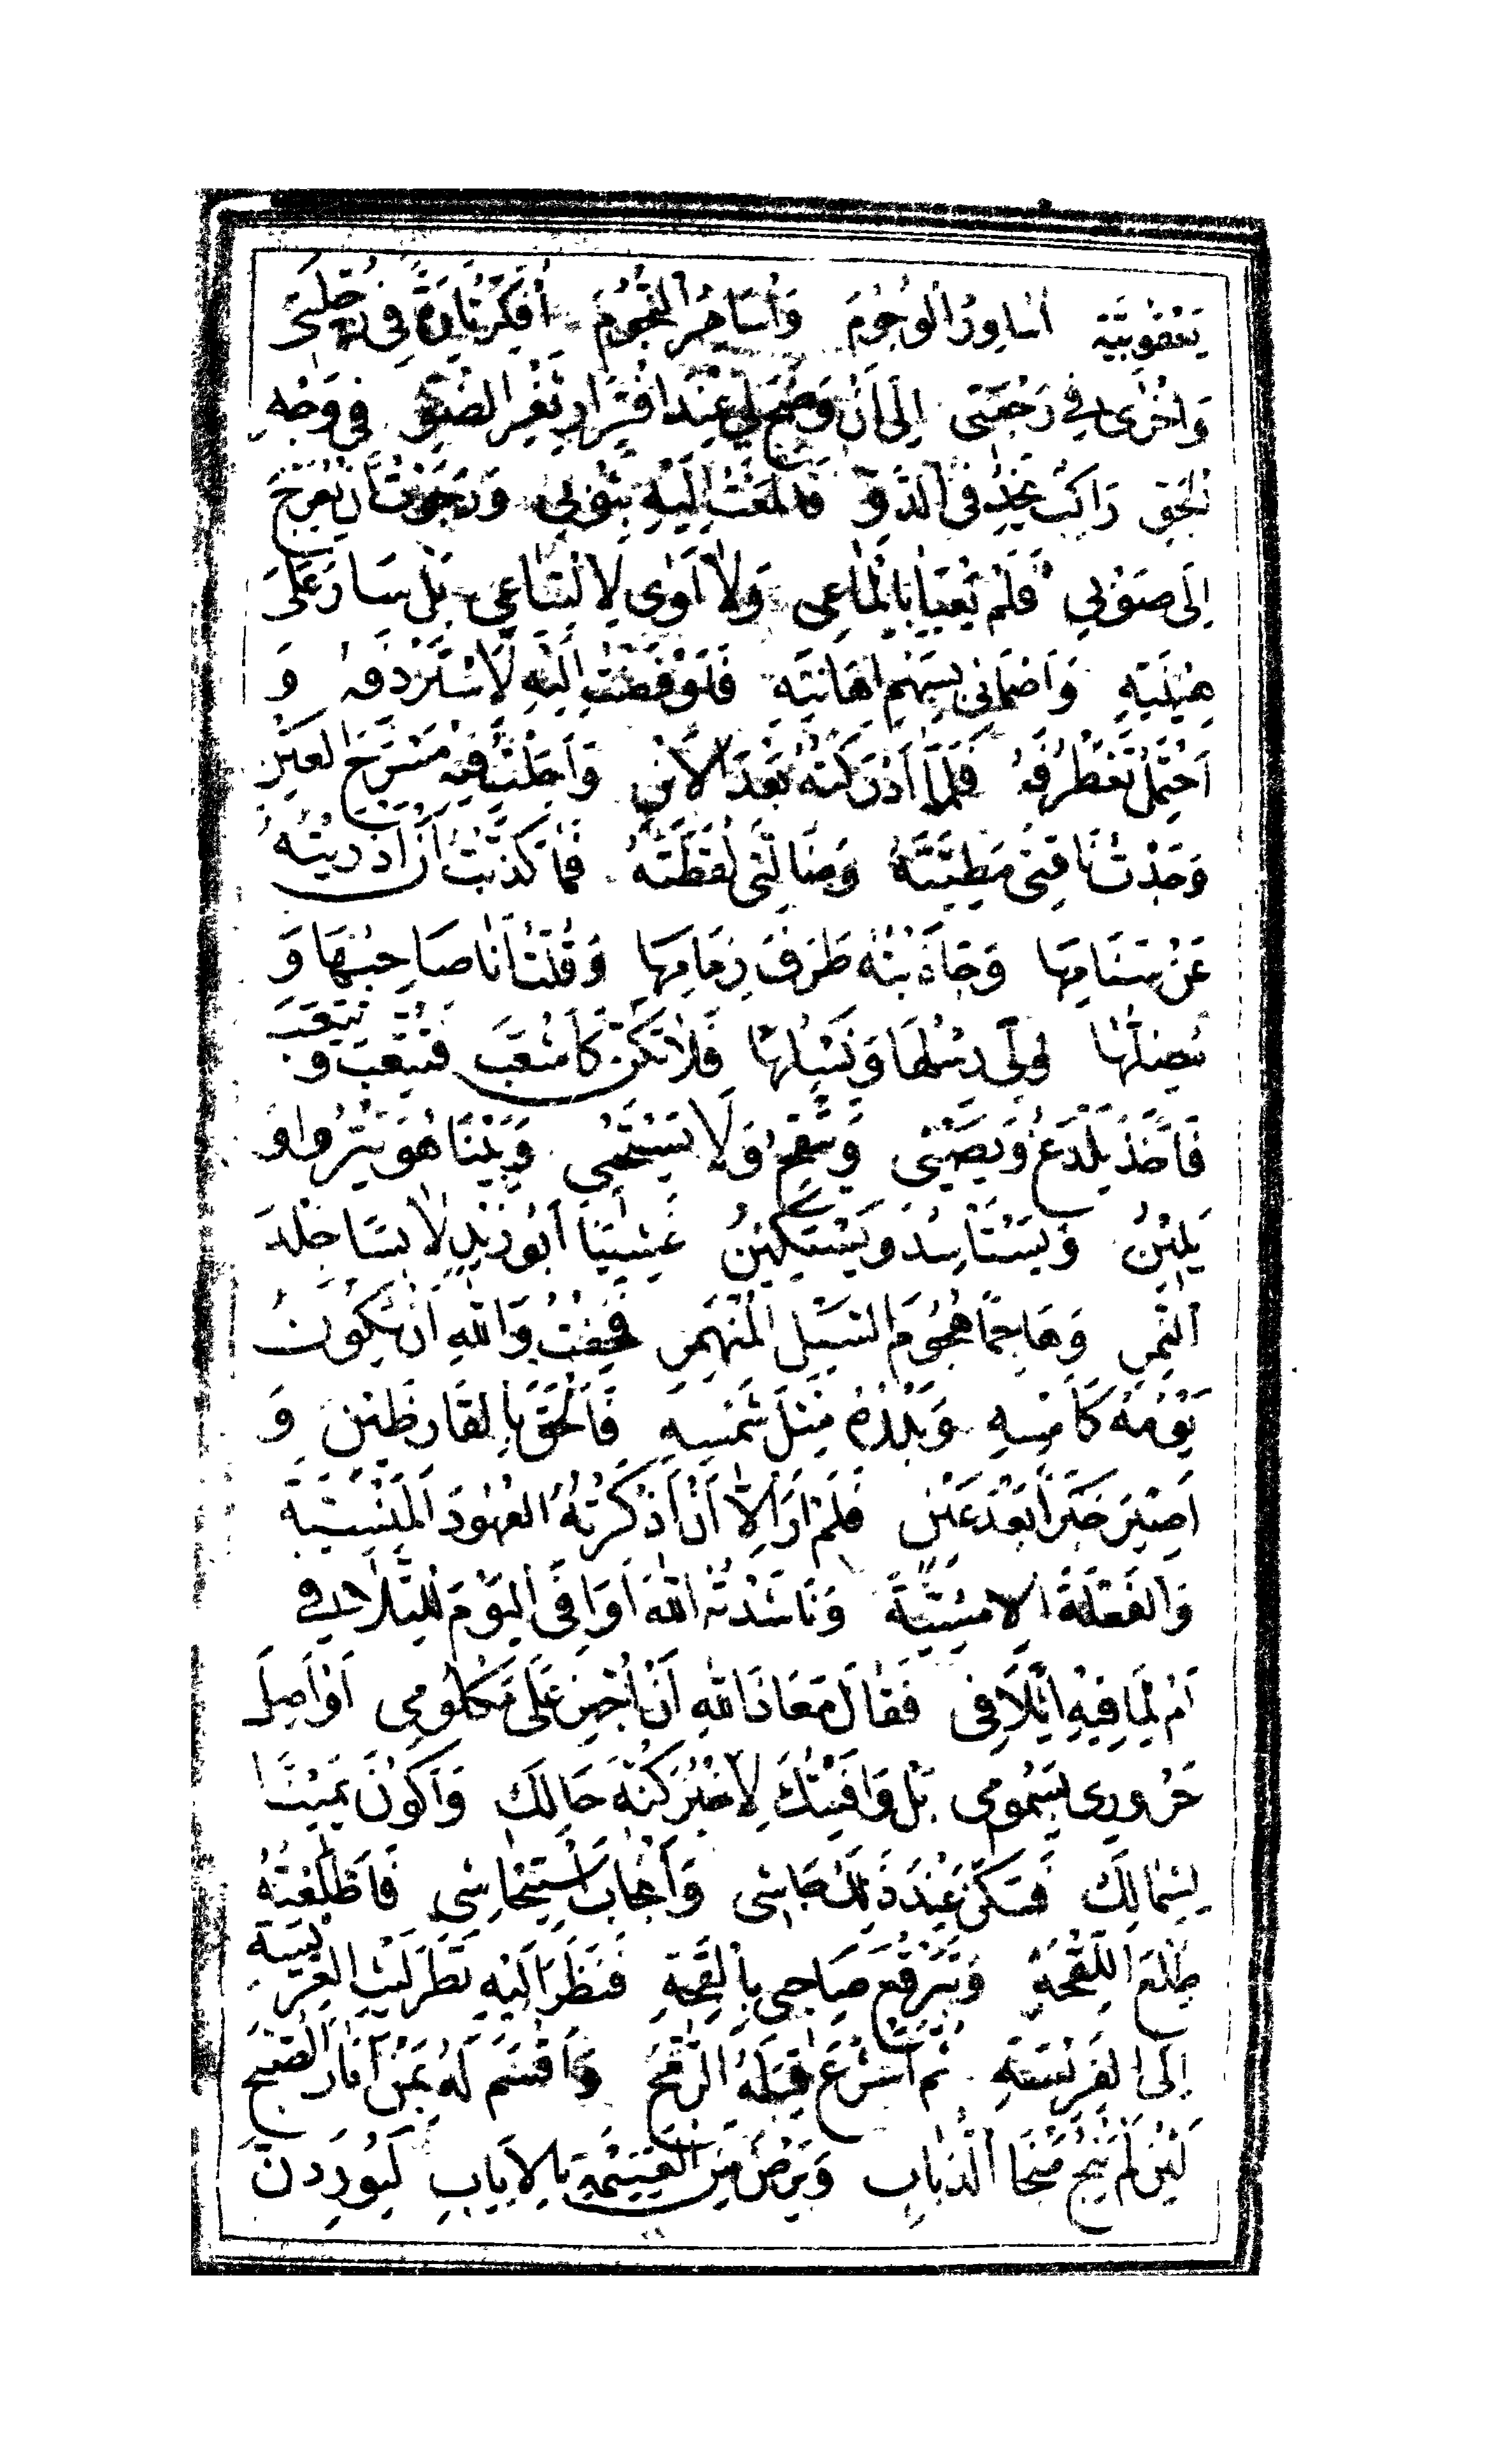 يَعْقُوبِيَّة اُسَاوِرُ الْوُجُومَ وَاُسَاهِرُ النُّجُومَ اُفَكِّرُ تَارَةً فِي رُجْلَتِي
وَاُخْرٰى فِي رَجْعَتِي اِلٰى اَنْ وَضَحَ لِي عِنْدَ افْتِرَارِ ثَغْرِ الضَّوْءِ فِي وَجْهِ
الْجَوِّ رَاكِبٌ يَخِدُ فِي الدَّوِّ فَاَلْمَعْتُ اِلَيْهِ بِثَوْبِي وَرَجَوْتُ اَنْ يُعَرِّجَ
اِلٰى صَوْبِي فَلَمْ يَعْبَأْ بِاِلْمَاعِي وَلَا اَوٰى لِالْتِيَاعِي بَلْ سَارَ عَلٰى
هِيْنَتِهِ وَاَصْمَانِي بِسَهْمِ اِهَانَتِهِ فَاَوْفَضْتُ اِلَيْهِ لِاَسْتَرْدِفَهُ وَ
اَحْتَمِلَ تَغَطْرُفَهُ فَلَمَّا اَدْرَكْتُهُ بَعْدَ الْاَيْنِ وَاَجَلْتُ فِيهِ مَسْرَحَ الْعَيْنِ
وَجَدْتُ نَاقَتِي مَطِيَّتَهُ وَضَالَّتِي لُقَطَتَهُ فَمَا كَذَّبْتُ اَنْ اَذْرَيْتُهُ
عَنْ سَنَامِهَا وَجَاذَبْتُهُ طَرَفَ زِمَامِهَا وَقُلْتُ اَنَا صَاحِبُهَا وَ
مُضِلُّهَا وَلِي رِسْلُهَا وَنَسْلُهَا فَلَا تَكُنْ كَاَشْعَبَ فَتُتْعِبَ وَتَتْعَبَ
فَاَخَذَ يَلْدَغُ وَيَصْئِي وَيَتَّقِحُ وَلَا يَسْتَحْيِي وَبَيْنَا هُوَ يَنْزُو وَ
يَلِينُ وَيَسْتَأْسِدُ وَيَسْتَكِينُ غَشِيَنَا اَبُو زَيْدٍ لَابِسًا جِلْدَ
النَّمِرِ وَهَاجِمًا هُجُومَ السَّيْلِ الْمُنْهَمِرِ فَخِفْتُ وَاللّٰهِ اَنْ يَكُونَ
يَوْمُهُ كَاَمْسِهِ وَبَدْرُهُ مِثْلَ شَمْسِهِ فَاَلْحَقَ بِالْقَارِظَيْنِ وَ
اَصِيرَ خَبَرًا بَعْدَ عَيْنٍ فَلَمْ اَرَ اِلَّا اَنْ اَذْكَرْتُهُ الْعُهُودَ الْمَنْسِيَّةَ
وَالْفَعْلَةَ الْاَمْسِيَّةَ وَنَاشَدْتُهُ اللّٰهَ اَوَافَى الْيَوْمَ لِلتَّلَافِي
اَمْ لِمَا فِيهِ اِتْلَافِي فَقَالَ مَعَاذَ اللّٰهِ اَنْ اُجْهِزَ عَلٰى مَكْلُومِي اَوْ اَصِلَ
حَرُورِي بِسَمُومِي بَلْ وَافَيْتُكَ لِاَخْبُرَ كُنْهَ حَالِكَ وَاَكُونَ يَمِينًا
لِشِمَالِكَ فَسَكَنَ عِنْدَ ذٰلِكَ جَاشِي وَانْجَابَ اسْتِيحَاشِي فَاَطْلَعْتُهُ
طِلْعَ اللِّقْحَةِ وَتَبَرْقُعَ صَاحِبِي بِالْقِحَةِ فَنَظَرَ اِلَيْهِ نَظَرَ لَيْثِ الْعِرِّيسَةِ
اِلَى الْفَرِيسَةِ ثُمَّ اَشْرَعَ قِبَلَهُ الرُّمْحَ وَاَقْسَمَ لَهُ بِمَنْ اَنَارَ الصُّبْحَ
لَئِنْ لَمْ يَنْجُ مَنْجَا الذُّبَابِ وَيَرْضَ مِنَ الْغَنِيمَةِ بِالْاِيَابِ لَيُورِدَنَّ